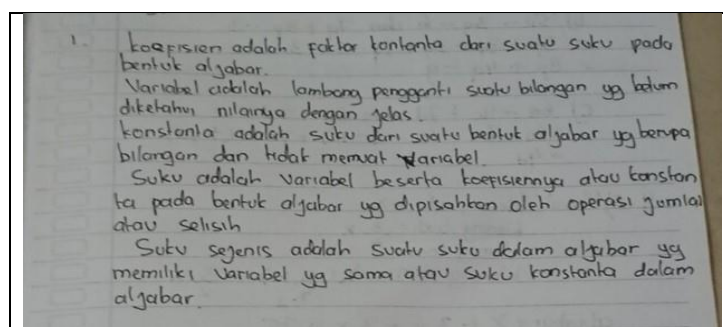 1. koefisien adalah faktor kontanta dari suatu suku pada
bentuk aljabar.
Variabel adalah lambang pengganti suatu bilangan yg belum
diketahui nilainya dengan jelas.
konstanta adalah suku dari suatu bentuk aljabar yg berupa
bilangan dan tidak memuat variabel.
Suku adalah variabel beserta koefisiennya atau konstan
ta pada bentuk aljabar yg dipisahkan oleh operasi jumlah
atau selisih
Suku sejenis adalah suatu suku dalam aljabar yg
memiliki variabel yg sama atau suku konstanta dalam
aljabar.